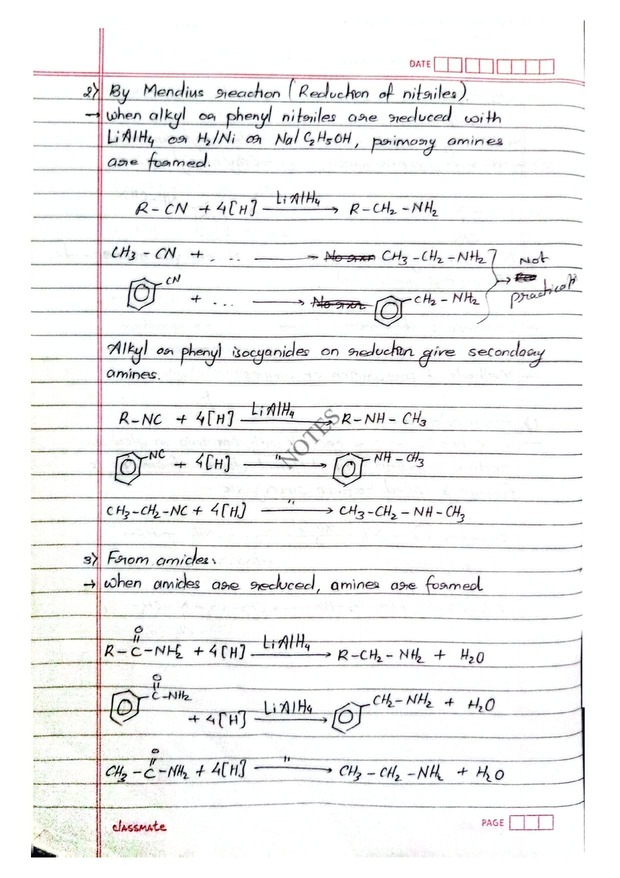 DATE
2) By Mendius reaction (Reduction of nitriles)
→ when alkyl or phenyl nitriles are reduced with
LiAlH4 or H2/Ni or Na/C2H5OH, primary amines
are formed.
R-CN + 4[H] LiAlH4 → R-CH2-NH2
CH3-CN + . ... → CH3-CH2-NH2
CN + ... → CH2-NH2 → Not practical
Alkyl or phenyl isocyanides on reduction give secondary
amines.
R-NC + 4[H] LiAlH4 → R-NH-CH3
NC + 4[H] " → NH-CH3
CH3-CH2-NC + 4[H] " → CH3-CH2-NH-CH3
NOTES
3) From amides.
→ when amides are reduced, amines are formed
O
R-C-NH2 + 4[H] LiAlH4 → R-CH2-NH2 + H2O
O
C-NH2 + 4[H] LiAlH4 → CH2-NH2 + H2O
O
CH3-C-NH2 + 4[H] " → CH3-CH2-NH2 + H2O
classmate
PAGE